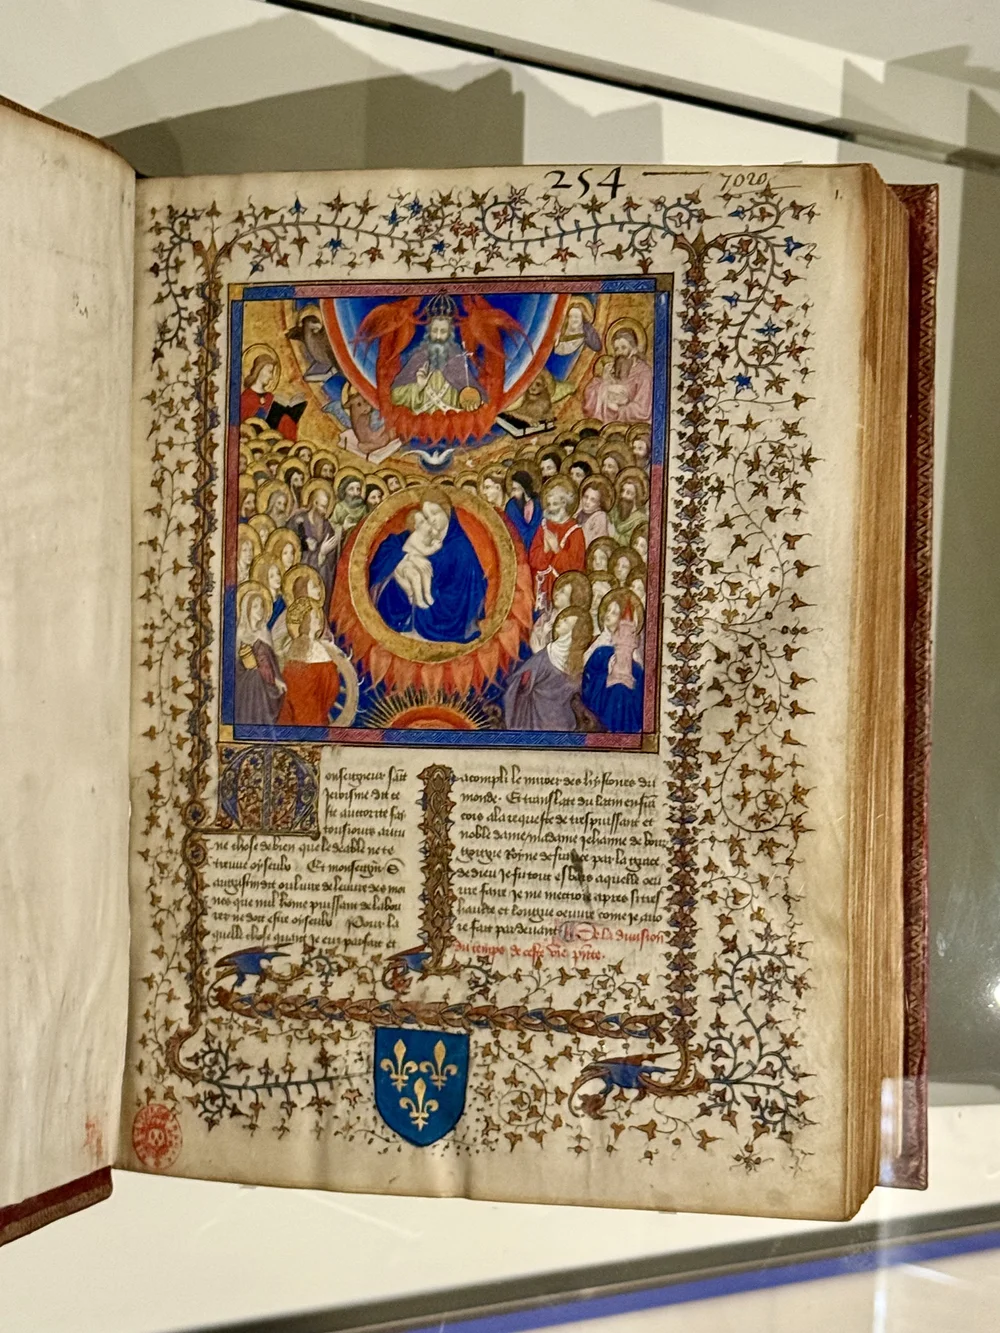 254 7020
1.
Monseigneur sait
Jerosme dit ce
ste auctorite fay
tousiours aucu
ne chose de bien que le deable ne te
treuve oyseulx. Et monseign̄. S
augustin dit ou livre de leuvre des moi
nes que nul hōme puissant de labou
rer ne doit estre oyseulx. Pour la
quelle chose quant Je euz parfait et
acompli le miroer des hystoires du
monde. Et translate du latin en frā
cois a la requeste de trespuissant et
noble dame madame Jehanne de bour
goigne Royne de france par la grace
de dieu Je fu tout esbais a quelle oeu
vre faire Je me mectroie apres si tres
haulte et longue oeuvre come Je avo
re fait par devant De la division
du temps de ceste vie pn̄te.